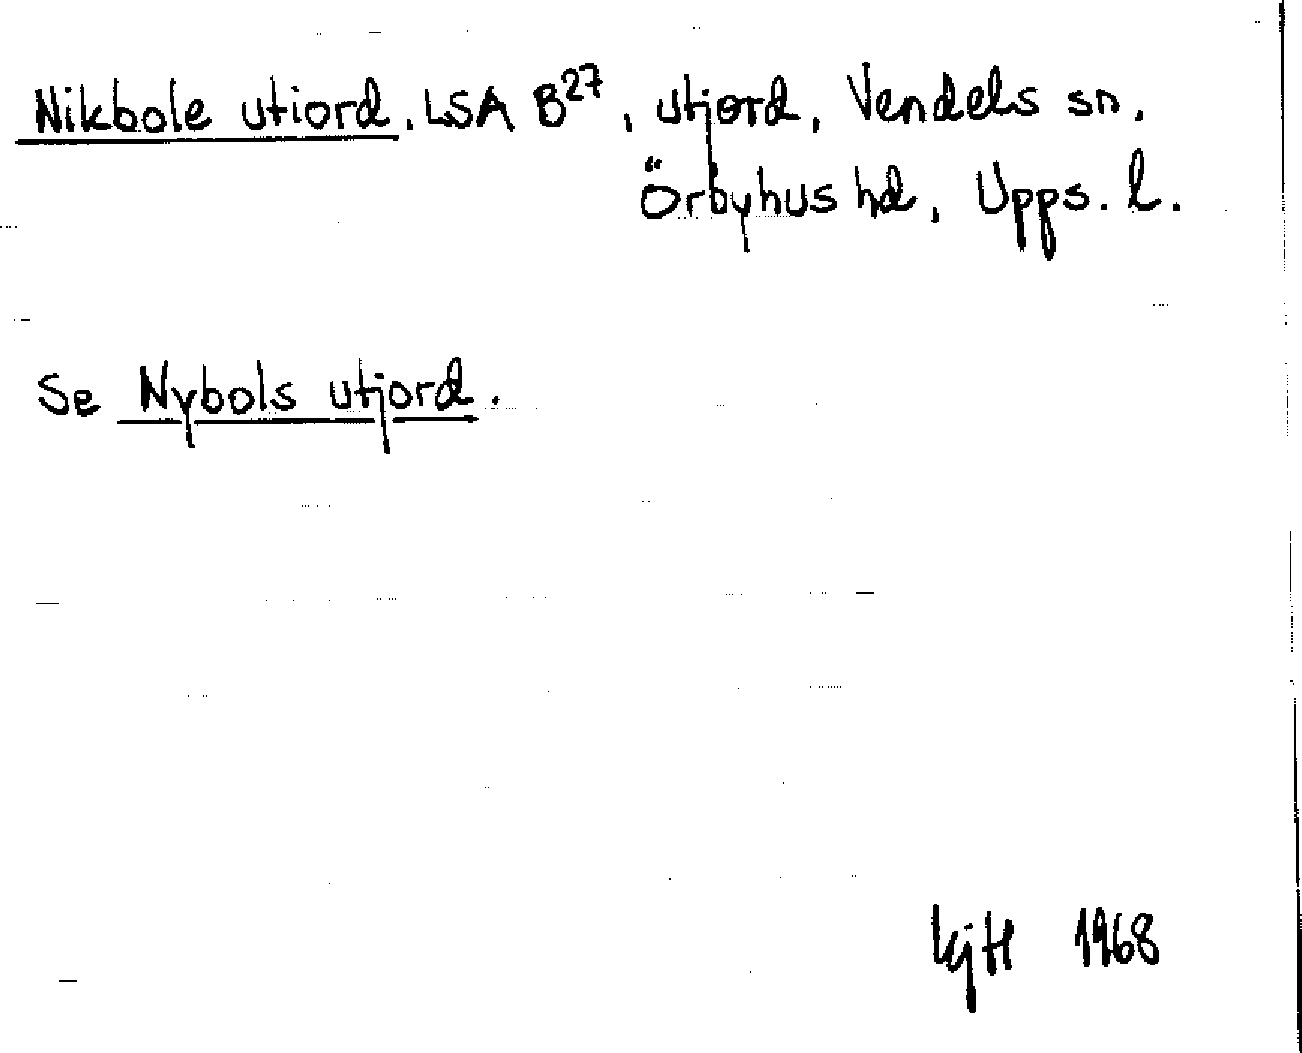 Nikbole utiord, LSA B²⁷, utjord, Vendels sn.
Örbyhus hd, Upps. l.
Se Nybols utjord.
KjH 1968